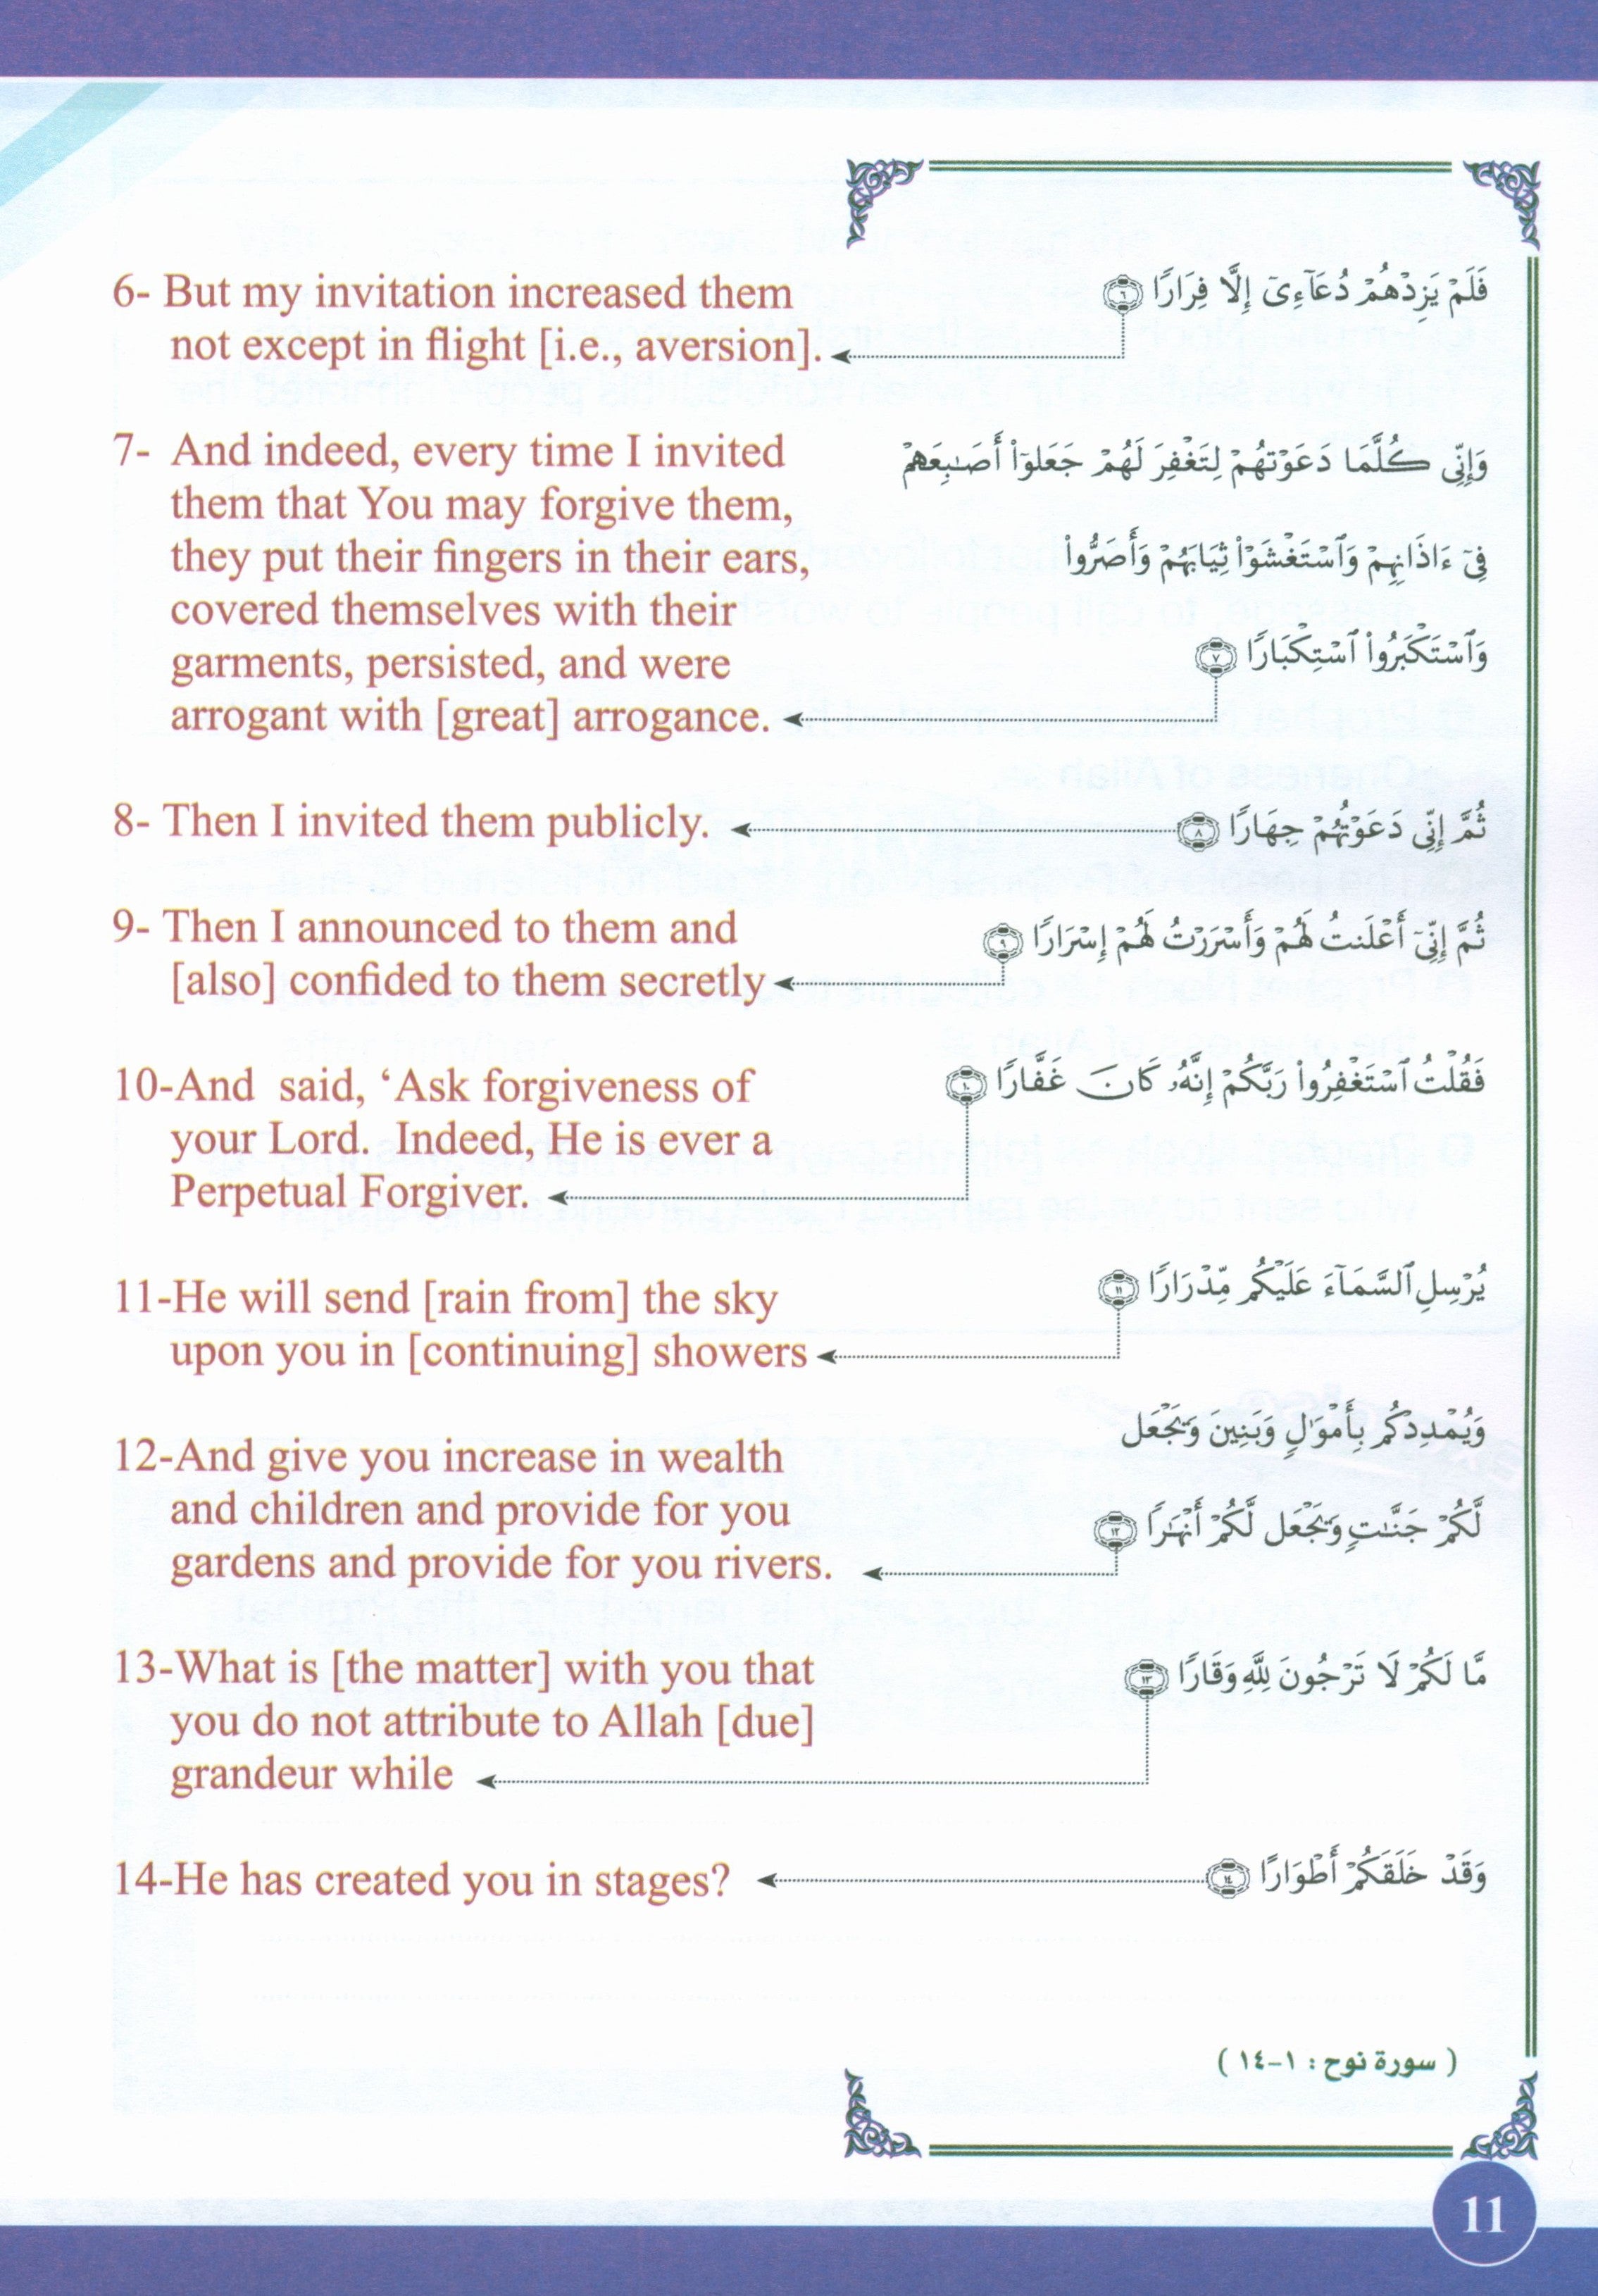 6- But my invitation increased them
not except in flight [i.e., aversion].
فَلَمْ يَزِدْهُمْ دُعَآءِىٓ إِلَّا فِرَارًا ٦
7- And indeed, every time I invited
them that You may forgive them,
they put their fingers in their ears,
covered themselves with their
garments, persisted, and were
arrogant with [great] arrogance.
وَإِنِّى كُلَّمَا دَعَوْتُهُمْ لِتَغْفِرَ لَهُمْ جَعَلُوٓا۟ أَصَـٰبِعَهُمْ
فِىٓ ءَاذَانِهِمْ وَٱسْتَغْشَوْا۟ ثِيَابَهُمْ وَأَصَرُّوا۟
وَٱسْتَكْبَرُوا۟ ٱسْتِكْبَارًا ٧
8- Then I invited them publicly.
ثُمَّ إِنِّى دَعَوْتُهُمْ جِهَارًا ٨
9- Then I announced to them and
[also] confided to them secretly
ثُمَّ إِنِّىٓ أَعْلَنتُ لَهُمْ وَأَسْرَرْتُ لَهُمْ إِسْرَارًا ٩
10-And said, ‘Ask forgiveness of
your Lord. Indeed, He is ever a
Perpetual Forgiver.
فَقُلْتُ ٱسْتَغْفِرُوا۟ رَبَّكُمْ إِنَّهُۥ كَانَ غَفَّارًا ١٠
11-He will send [rain from] the sky
upon you in [continuing] showers
يُرْسِلِ ٱلسَّمَآءَ عَلَيْكُم مِّدْرَارًا ١١
12-And give you increase in wealth
and children and provide for you
gardens and provide for you rivers.
وَيُمْدِدْكُم بِأَمْوَٰلٍ وَبَنِينَ وَيَجْعَل
لَّكُمْ جَنَّـٰتٍ وَيَجْعَل لَّكُمْ أَنْهَـٰرًا ١٢
13-What is [the matter] with you that
you do not attribute to Allah [due]
grandeur while
مَّا لَكُمْ لَا تَرْجُونَ لِلَّهِ وَقَارًا ١٣
14-He has created you in stages?
وَقَدْ خَلَقَكُمْ أَطْوَارًا ١٤
( سورة نوح : ١-١٤ )
11